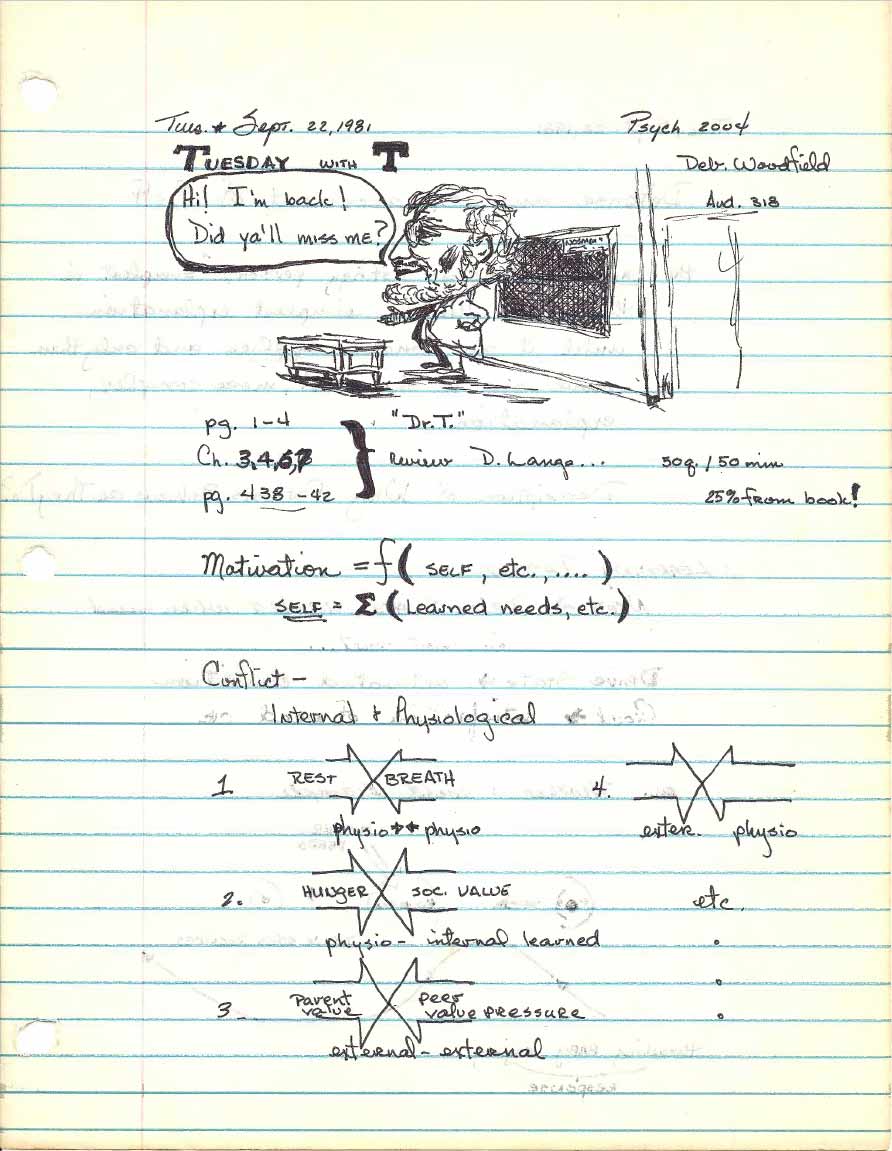 Tues. * Sept. 22, 1981
Psych 2004
TUESDAY WITH T
Deb. Woodfield
Aud. 318
Hi! I'm back!
Did ya'll miss me?
4
pg. 1-4
"Dr. T."
Ch. 3,4,6,7
review D. Lange...
50q. / 50 min
pg. 438-42
25% from book!
Motivation = f ( SELF, etc., .... )
SELF = Σ ( Learned needs, etc. )
Conflict -
Internal & Physiological
1 REST BREATH
physio physio
4.
exter. physio
2. HUNGER SOC. VALUE
etc.
physio - internal learned
3 Parent value Peer value PRESSURE
external - external